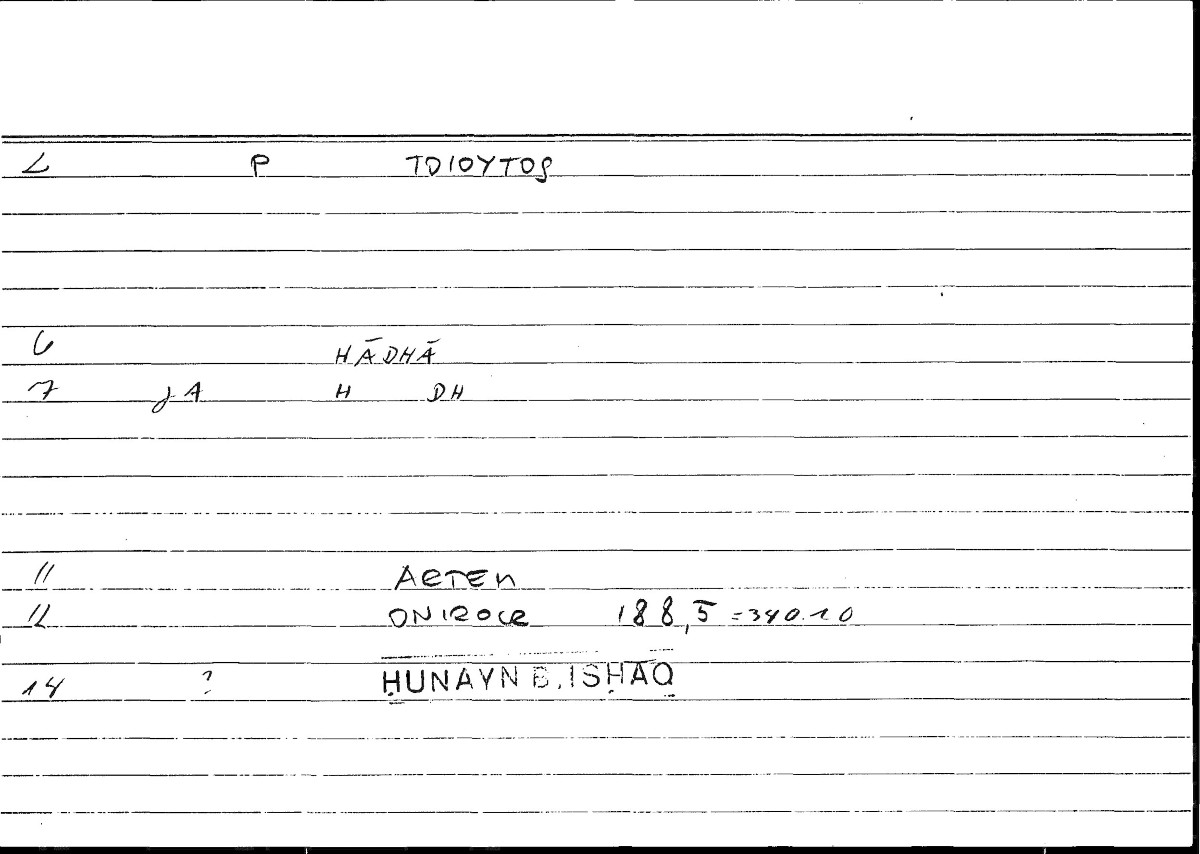 2 P TOIOYTOS
6 HĀDHĀ
7 JA H DH
11 ARTEM
12 ONIROCR 188,5 =340.10
14 ? ḤUNAYN B. ISḤĀQ